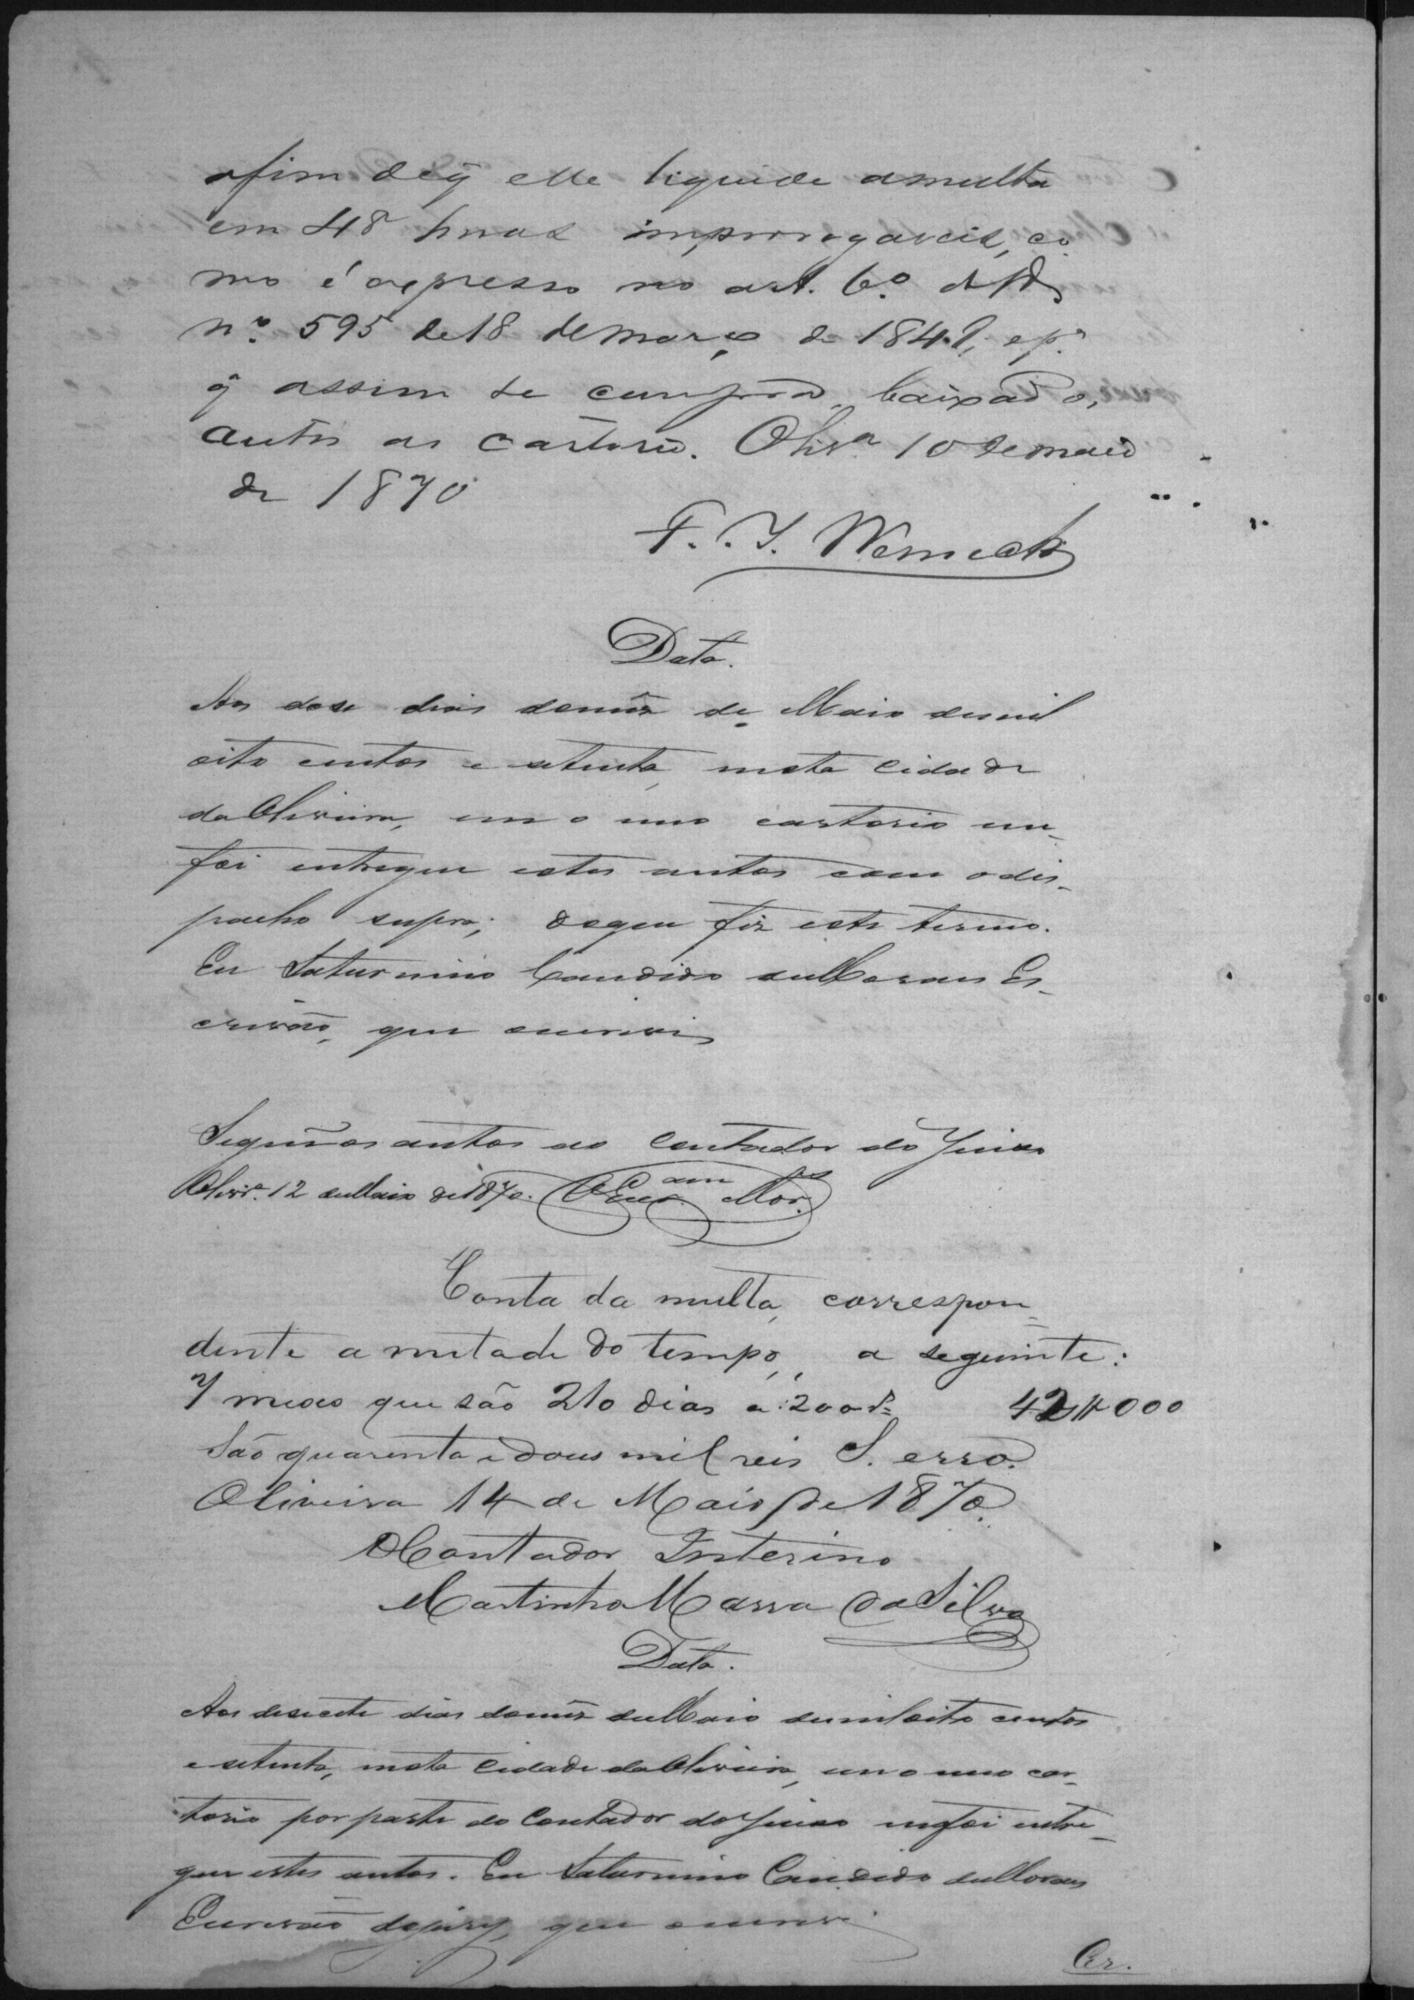 afim de q̃ elle liquide a multa
em 48 horas improrogaveis, co
mo é expresso no art. 6.º do D
nº 595 de 18 de março de 1849, e p.ª
q̃ assim se cumpra, baixad os
autos ao cartorio. Olivr.ª 10 de maio
de 1870
F. . J. Werneck
Data.
Aos dose dias do mez de Maio de mil
oito centos e setenta, nesta cidade
da Oliveira, em o meo cartorio me
foi entregue estes autos com o des-
pacho supra; do que fiz este termo.
Eu Saturnino Candido de Moraes Es-
crivão, que escrevi
Seguem os autos ao Contador do Juizo
Olivr.ª 12 de Maio de 1870. O Escr.
Conta da multa, correspon
dente a metade do tempo, a seguinte:
7 meses que são 210 dias a 200 r.s 42$000
São quarenta e dous mil reis S. erro.
Oliveira 14 de Maio de 1870.
O Contador Interino
Martinho Massa da Silva
Data.
Aos desecete dias do mez de Maio de mil oito centos
e setenta, nesta cidade da Oliveira, em o meo car-
torio por parte do Contador do Juizo me foi entre-
gue estes autos. Eu Saturnino Candido de Moraes
Escrivão do jury, que escrevi